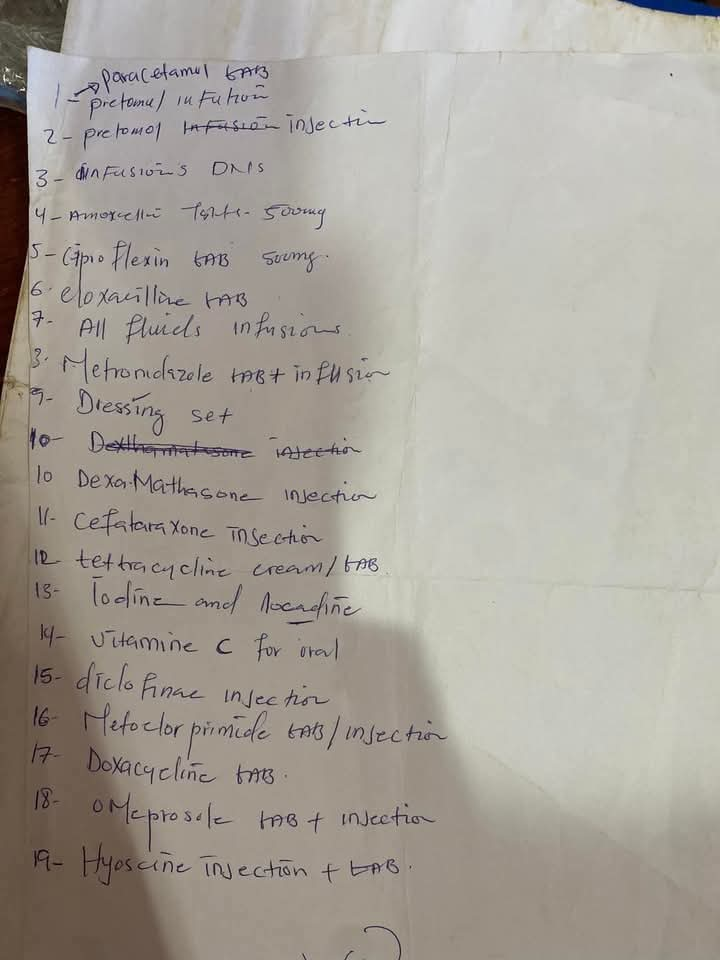 paracetamul tAB
1- pretomul infution
2- pretomol infusion injectin
3- infusions DNS
4- Amoxcilli Tabts- 500mg
5- Ciproflexin tAB 500mg.
6. cloxacilline tAB
7- All fluids infusions.
8. Metronidazole tAB + infusion
9- Dressing set
10- Dexthamatasone injection
10 Dexa.Mathasone injection
11- Cefataraxone injection
12 tettracycline cream/tAB
13- Iodine and
14- Vitamine C for oral
15- diclofinac injection
16- Metoclorprimide tAB/injection
17- Doxacycline tAB.
18- omeprosole tAB + injection
19- Hyoscine injection + tAB.